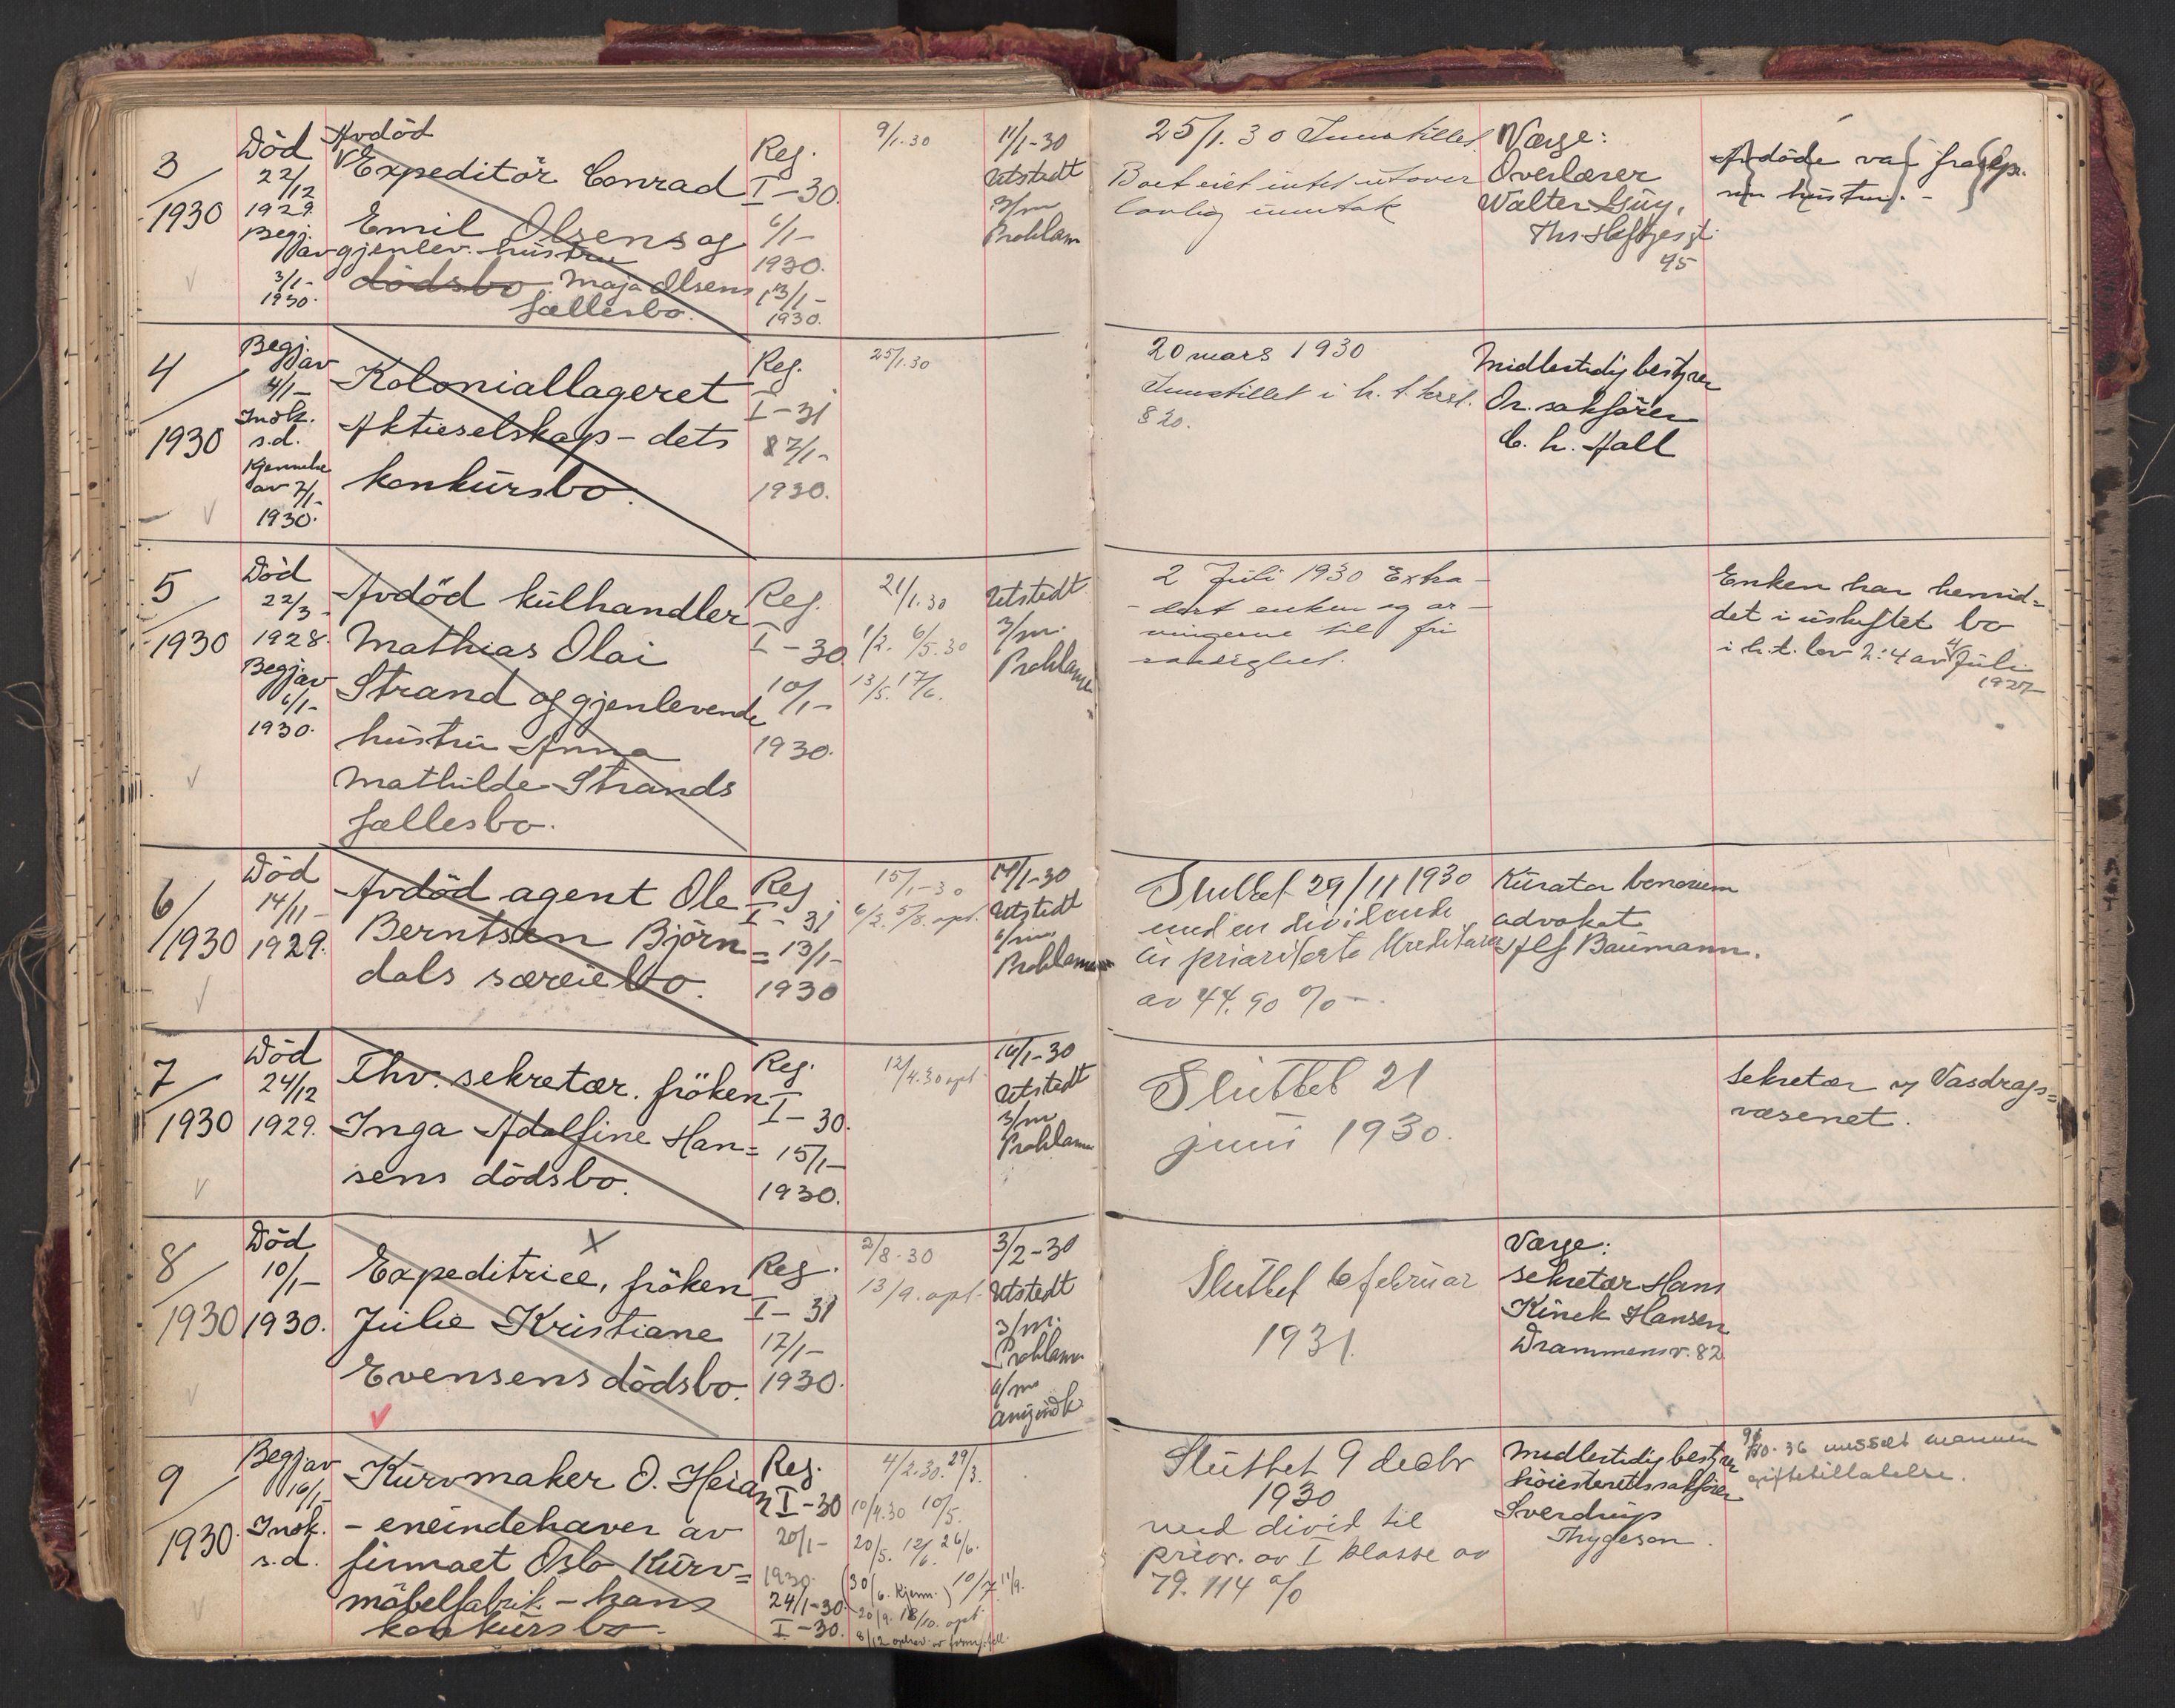 3
1930
Död
22/12
1929.
Begj. av
3/1-
1930.
Avdöd
Expeditör Conrad
Emil Olsens og
gjenlev. hustru
dödsbo. Maja Olsens
fællesbo.
Reg.
I-30.
6/1-
1930.
13/1-
1930.
9/1-30
11/1-30
Utstedt
3/m
Proklam
25/1.30 Innstillet.
Boet eiet intet utover
lovlig unntak
Værge:
Overlærer
Walter Güy,
Ths. Heftyesgt.
45
Avdöde var frasep.
sin hustru. -
4
1930
Begj. av
4/1-
Insk.
s.d.
Kjennelse
av 7/1-
1930.
Koloniallageret
Aktieselskap - dets
konkursbo.
Reg.
I-31
8 7/1-
1930.
25/1.30
20 mars 1930
Innstillet i h. t. kksl.
§ 20.
Midlertidig bestyrer
Or. sakförer
C. h. Hall
5
1930
Död
22/3-
1928.
Begj. av
6/1-
1930.
Avdöd kulhandler
Mathias Olai
Strand og gjenlevende
hustru Anna
Mathilde Strands
fællesbo.
Reg.
I-30
10/1-
1930.
21/1.30
1/2. 6/5.30
13/5. 17/6.
Utstedt
3/m.
Proklama
2 Juli 1930 Extra-
- dert enken og ar-
vingerne til fri
raadighet.
Enken har hensid=
det i uskiftet bo
i h.t. lov 2:4 av 4/Juli
1927
6
1930
Död
14/11-
1929.
Avdöd agent Ole
Berntsen Björn=
dals særeiebo.
Reg.
I-31
13/1-
1930
15/1-30
6/2. 5/8. opt.
14/1-30
Utstedt
6/mnd
Proklama
Sluttet 29/11 1930
med en dividende
til prioriterte kreditorer
av 44.90 % -.
Kurator bonorum
advokat
Alf Baumann.
7
1930
Död
24/12
1929.
Fhv. sekretær. fröken
Inga Adolfine Han=
sens dödsbo.
Reg.
I-30.
15/1-
1930.
12/4.30 opt.
16/1-30
Utstedt
3/m
Proklama
Sluttet 21
juni 1930.
Sekretær v/ Vasdrags=
væsenet.
8
1930
Död
10/1-
1930.
Expeditrice, fröken
Julie Kristiane
Evensens dödsbo.
Reg.
I-31
17/1-
1930.
2/8-30
13/9. opt.
3/2-30
Utstedt
3/m.
Proklam
6/m
Sluttet 6 februar
1931.
Værge:
sekretær Hans
Kinck Hansen
Drammensv. 82
9
1930.
Begj. av
16/1-
Insk.
s.d.
Kurvmaker O. Heian
- eneindehaver av
firmaet Oslo Kurv=
möbelfabrik - hans
konkursbo.
Reg.
I-30
20/1-
1930.
24/1-30.
I-30.
4/2.30. 29/3.
10/4.30 10/5.
20/5. 12/6. 26/6.
(30/6. Kjenn.) 10/7. 11/9.
20/9. 18/10. opt.
Sluttet 9 decbr
1930
med divid til
prior. av I klasse av
79.114 %
Midlertidig bestyrer
höiesterettssakförer
Sverdrup
Thygeson.
9/10-36 utstedt mannen
giftetillatelse.